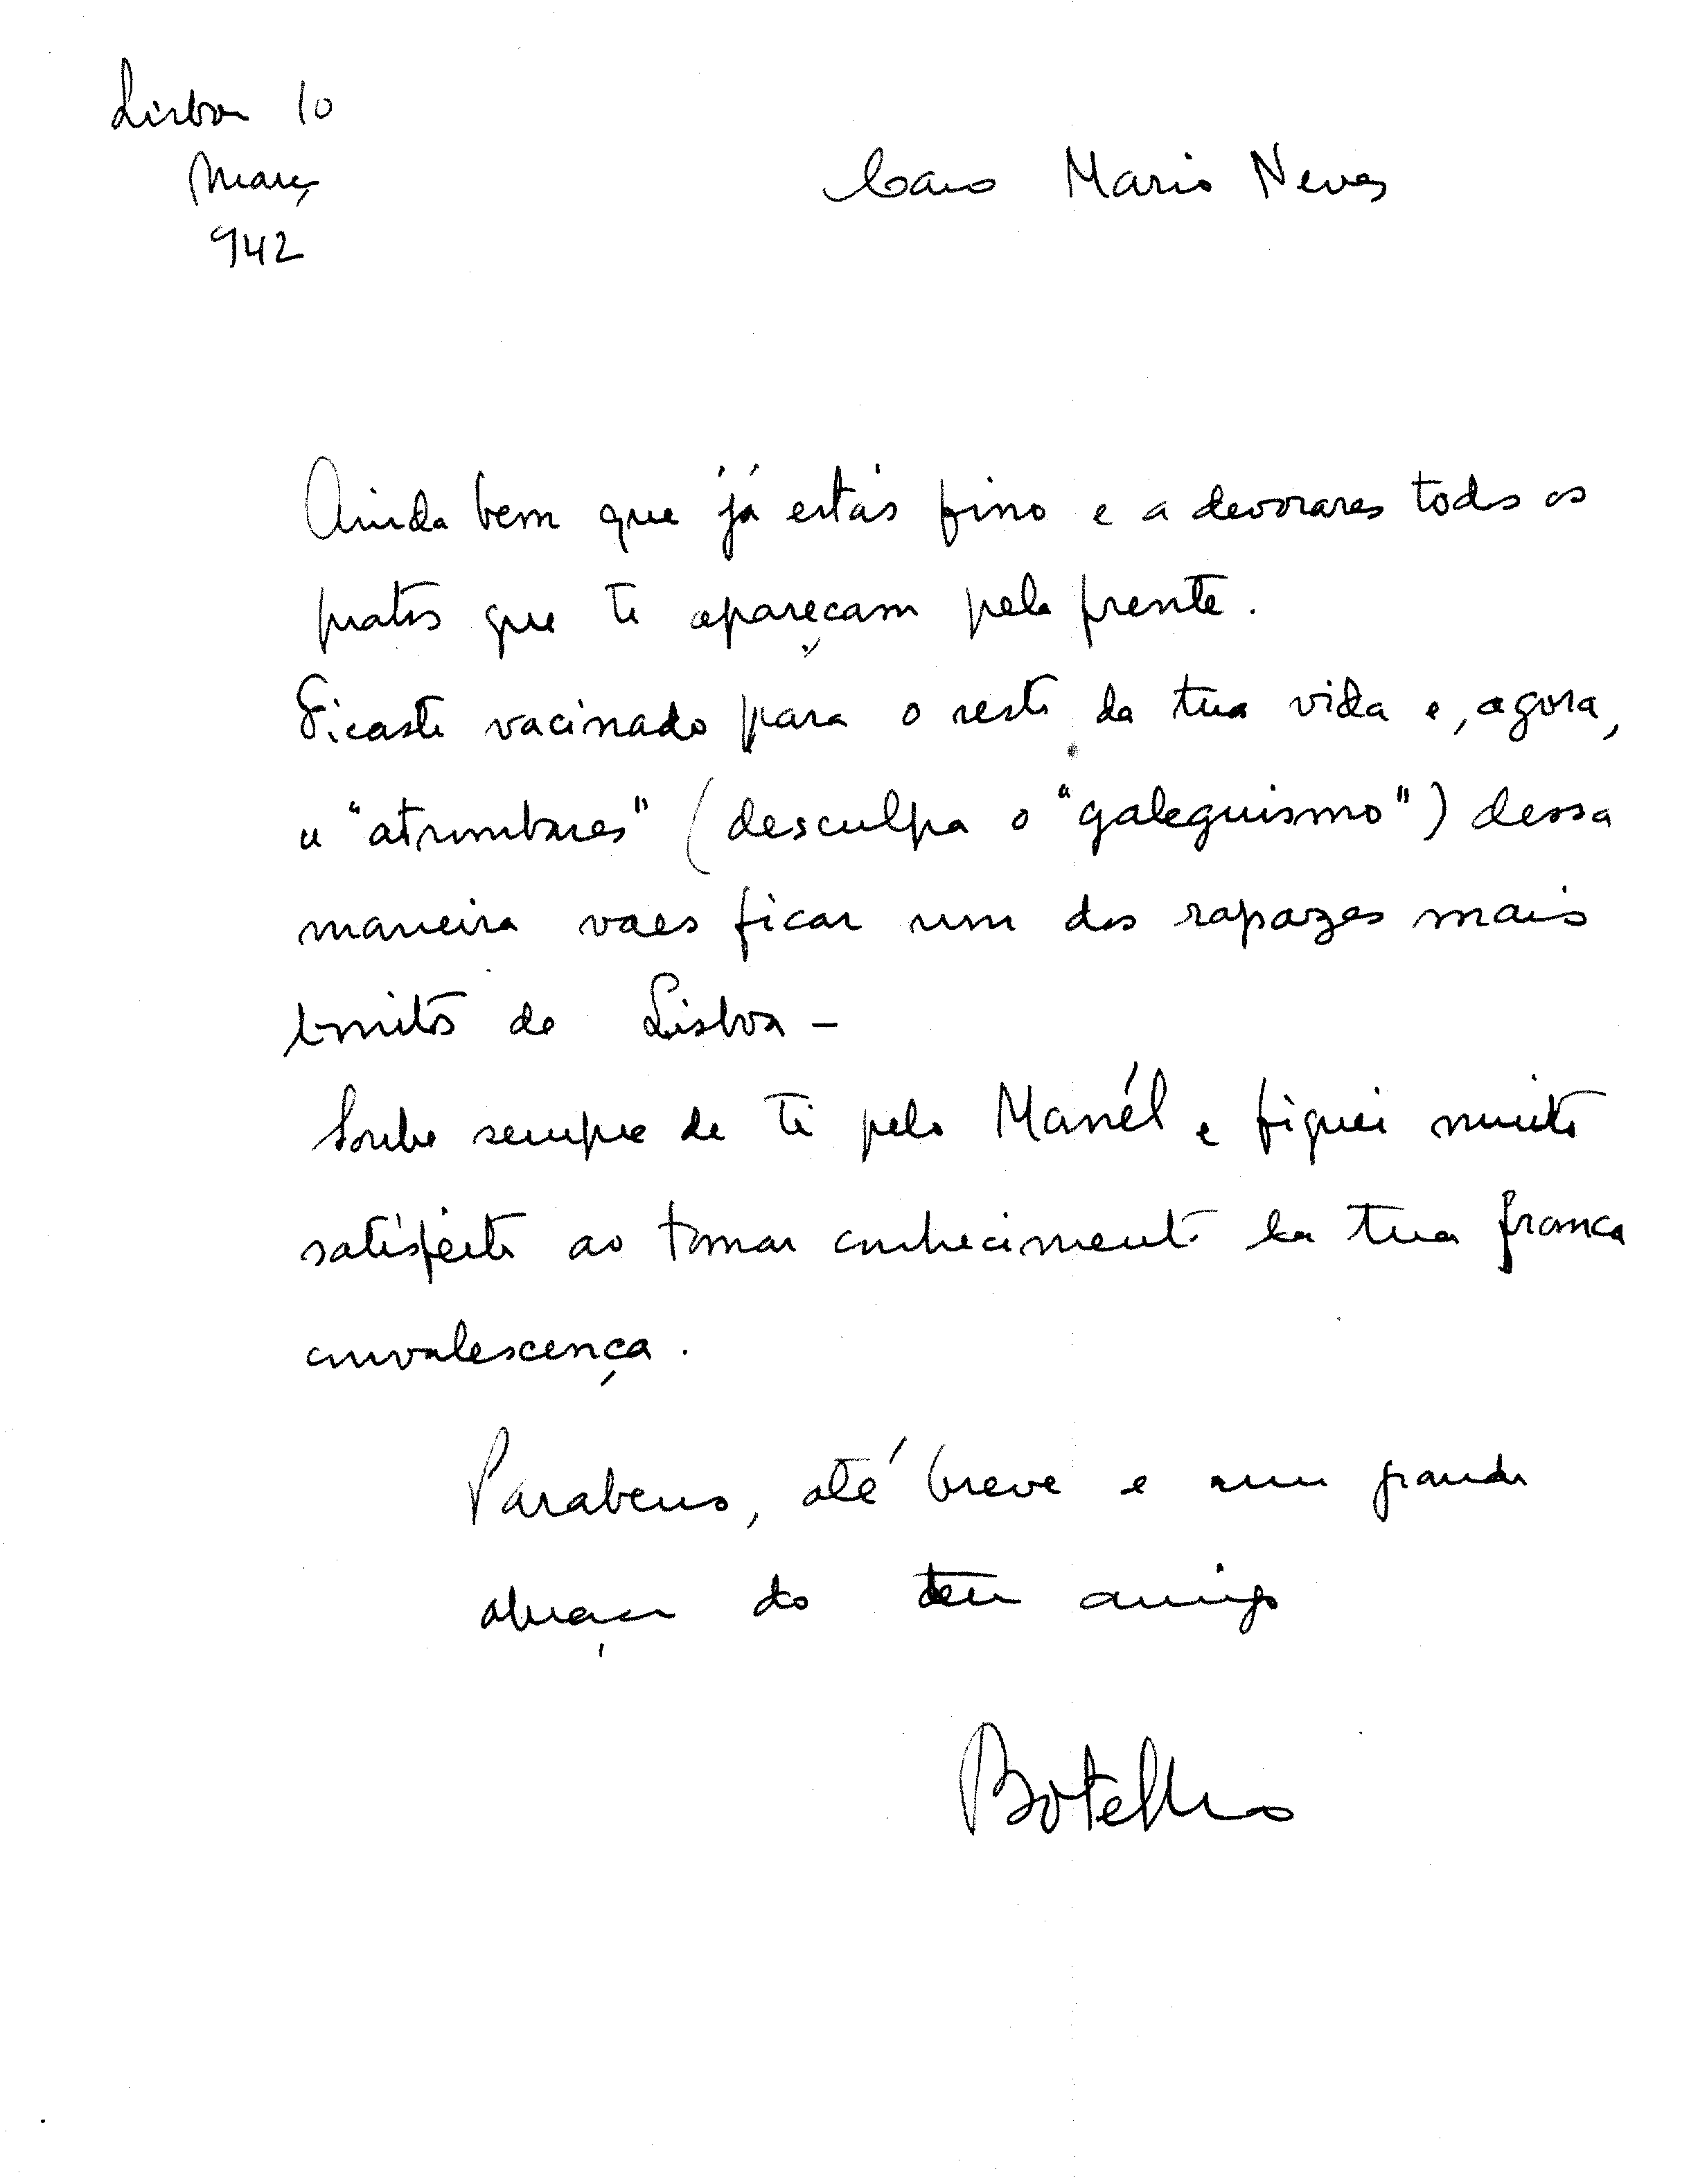 Lisboa 10
Março
942
Caro Mario Neves
Ainda bem que já estás fino e a devorares todos os
pratos que te apareçam pela frente.
Ficaste vacinado para o resto da tua vida e, agora,
a "atrombares" (desculpa o "galeguismo") dessa
maneira vaes ficar um dos rapazes mais
bonitos de Lisboa -
Soube sempre de ti pelo Manél e fiquei muito
satisfeito ao tomar conhecimento da tua franca
convalescença.
Parabens, até breve e um grande
abraço do teu amigo
Botelho